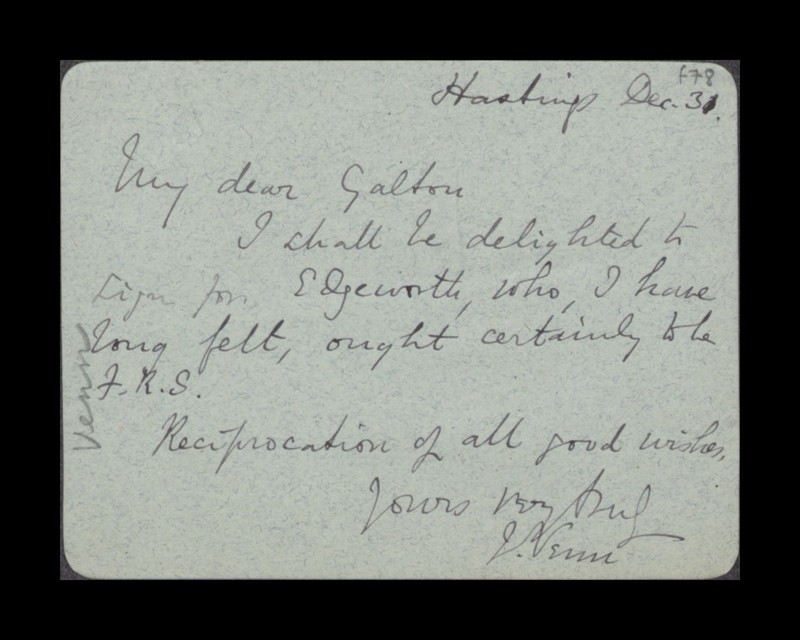 f78
Hastings Dec. 31.
My dear Galton
I shall be delighted to
sign for Edgeworth, who, I have
long felt, ought certainly to be
F.R.S.
Reciprocation of all good wishes,
Yours very truly
J. Venn
Venn